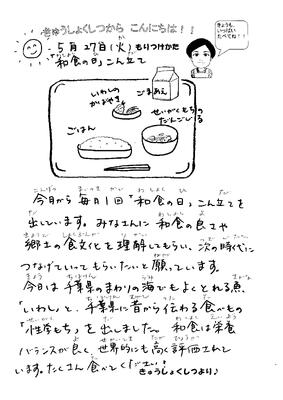 きゅうしょくしつから こんにちは！！
きょうも、
いっぱい
たべてね！！
5月27日(火)もりつけかた
「和食の日」こん立て
いわしの
かばやき
ごまあえ
せいがくもちの
だんごじる
ごはん
今月から毎月1回「和食の日」こん立てを
出しています。みなさんに和食の良さや
郷土の食文化を理解してもらい、次の時代に
つなげていってもらいたいと願っています。
今日は千葉県のまわりの海でもよくとれる魚
「いわし」と、千葉県に昔から伝わる食べもの
「性学もち」を出しました。和食は栄養
バランスが良く、世界的にも高く評価されて
います。たくさん食べてください！
きゅうしょくしつより♪